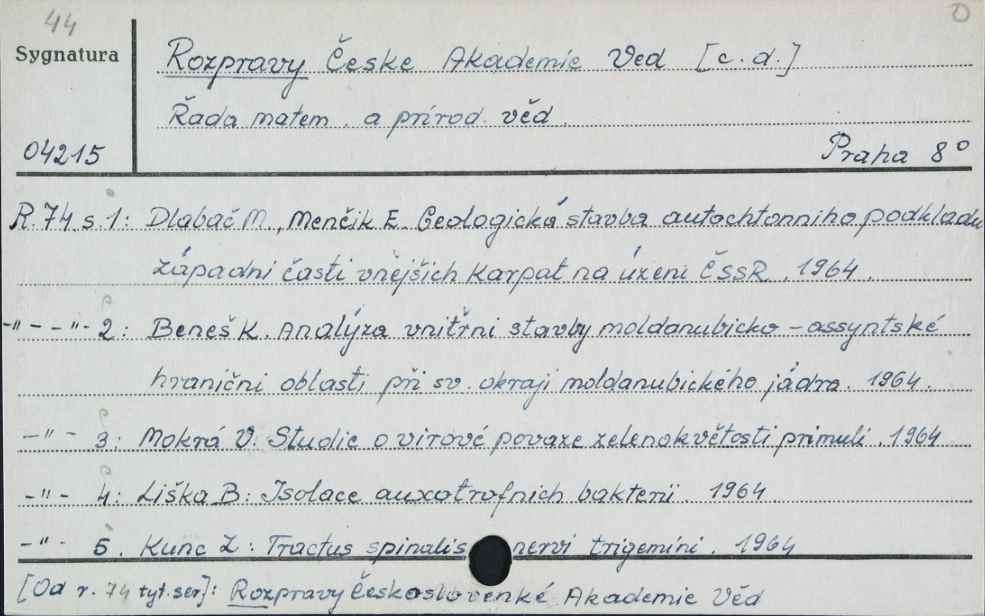 44
Sygnatura
Rozpravy České Akademie Ved [c.d.]
Řada matem. a prirod. věd.
04215
Praha 8°
R. 74 s. 1: Dlabač M., Menčik E. Geologická stavba autochtonniho podkladu
západni časti vnějšich Karpat na úzeni ČSSR. 1964.
-"- -"- 2: Beneš K. Analýza vnitřni stavby moldanubicko-assyntské
hranični oblasti při sv. okraji moldanubického jádra. 1964.
-"- 3: Mokrá V. Studie o virové povaze zelenokvětosti primuli. 1964
-"- 4: Liška B: Isolace auxotrofnich bakterii. 1964
-"- 5. Kunc Z: Tractus spinalis nervi trigemini. 1964
[Od r. 74 tyt. ser]: Rozpravy Československé Akademie Věd